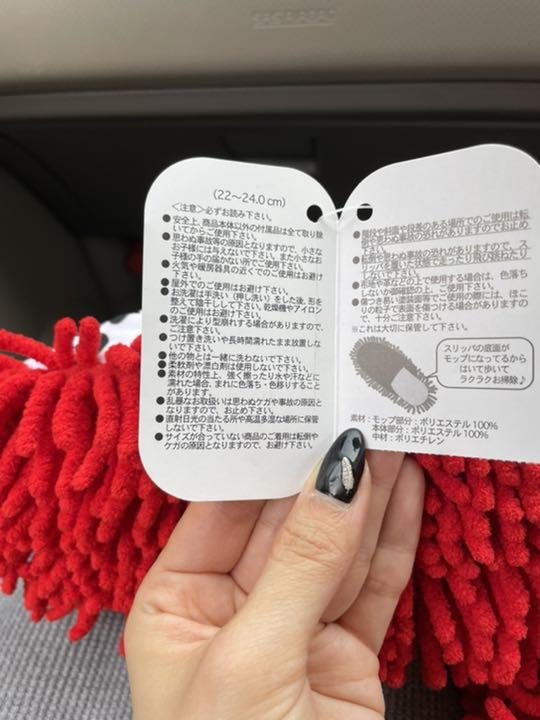 (22〜24.0 cm)
<注意>必ずお読み下さい。
●安全上、商品本体以外の付属品は全て取り除
いてからご使用下さい。
●思わぬ事故等の原因となりますので、小さな
お子様には与えないで下さい。また小さなお
子様の手の届かない所でご使用下さい。
●火気や暖房器具の近くでのご使用はお避け
下さい。
●屋外でのご使用はお避け下さい。
●お洗濯は手洗い（押し洗い）をした後、形を
整えて陰干しして下さい。乾燥機やアイロン
のご使用はお避け下さい。
●洗濯により型崩れする場合がありますので、
ご注意下さい。
●つけ置き洗いや長時間濡れたまま放置しな
いで下さい。
●他の物とは一緒に洗わないで下さい。
●柔軟剤や漂白剤は使用しないで下さい。
●素材の特性上、強く擦ったり水や汗などに
濡れた場合、まれに色落ち・色移りすること
があります。
●乱暴なお取扱いは思わぬケガや事故の原因と
なりますので、お止め下さい。
●直射日光の当たる所や高温多湿な場所に保管
しないで下さい。
●サイズが合っていない商品のご着用は転倒や
ケガの原因となりますので、お避け下さい。
●階段や斜面や段差のある場所でのご使用は転
倒や思わぬ事故の恐れがありますのでお止め
下さい。
●転倒や思わぬ事故の恐れがありますので、ス
リッパを履いた状態で走ったり飛び跳ねたり
しないで下さい。
●布地や革などの上で使用する場合は、色落ち
しないか御確認の上、ご使用下さい。
●傷つき易い塗装面等でご使用の際には、ほこ
りの粒子で表面を傷つける場合がありますの
で、十分ご注意下さい。
※これは大切に保管して下さい。
スリッパの底面が
モップになってるから
はいて歩いて
ラクラクお掃除♪
素材：モップ部分：ポリエステル 100%
本体部分：ポリエステル 100%
中材：ポリエチレン